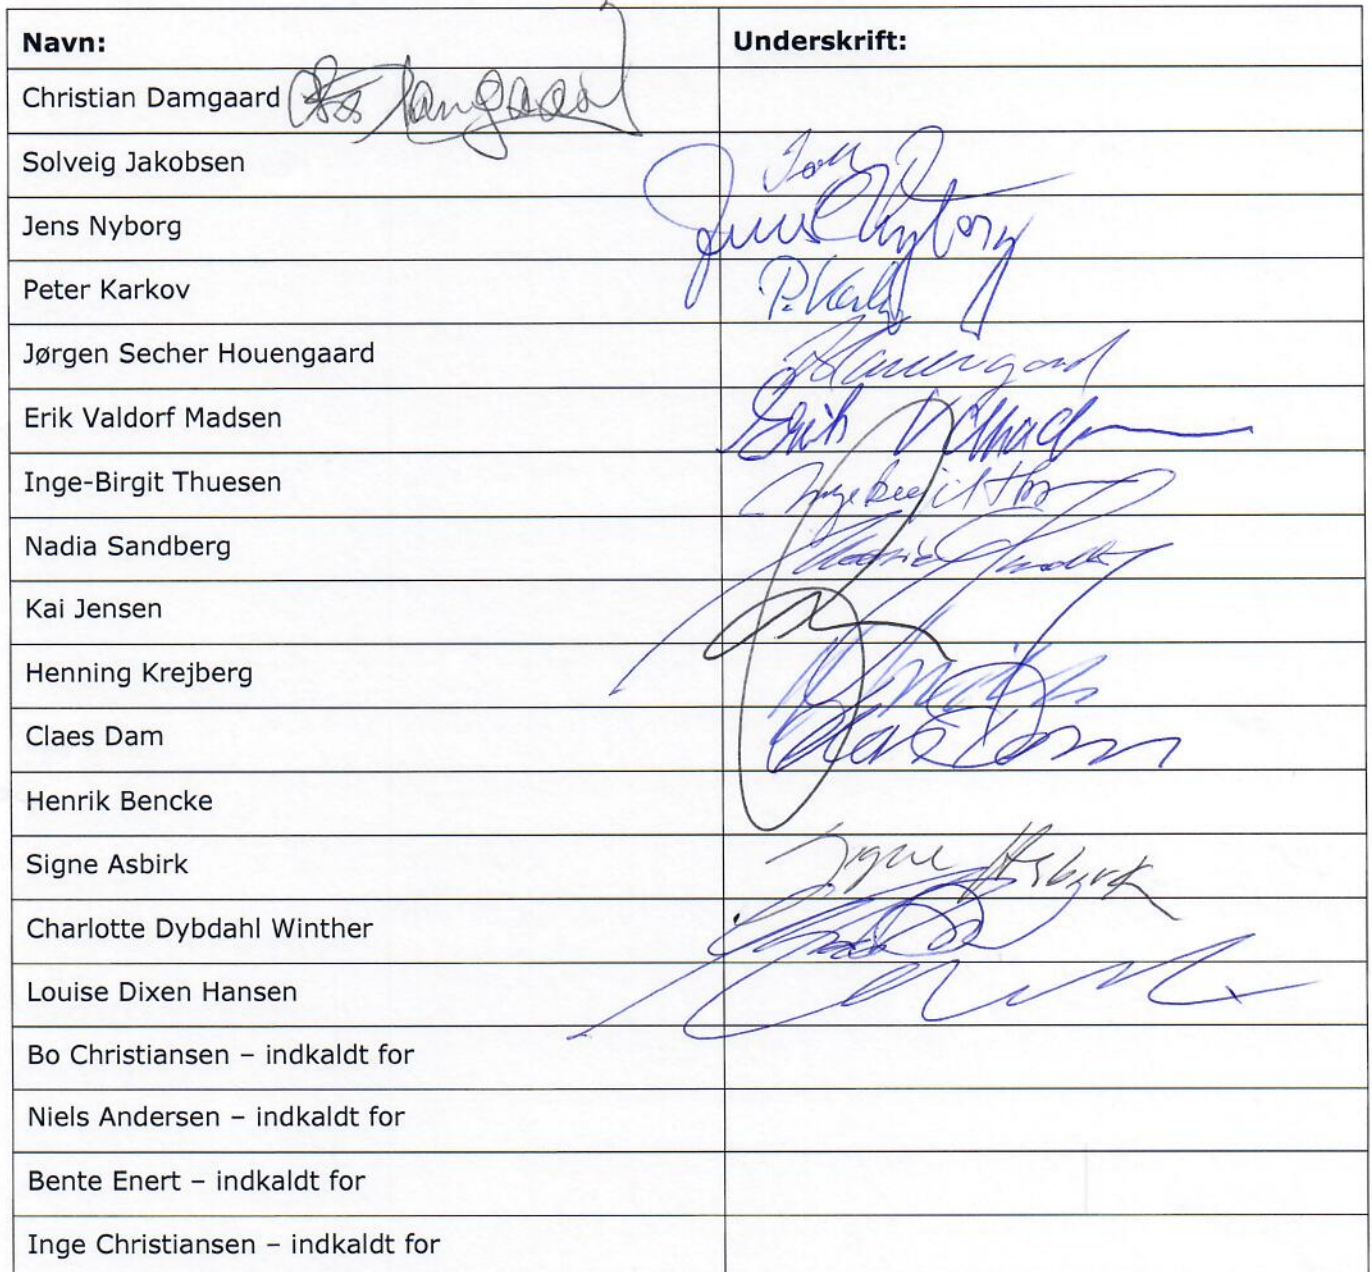 Navn: Underskrift:
Christian Damgaard
Solveig Jakobsen
Jens Nyborg Jens Nyborg
Peter Karkov P. Kark
Jørgen Secher Houengaard Houengaard
Erik Valdorf Madsen Erik
Inge-Birgit Thuesen
Nadia Sandberg
Kai Jensen
Henning Krejberg
Claes Dam Claes Dam
Henrik Bencke
Signe Asbirk Signe Asbirk
Charlotte Dybdahl Winther
Louise Dixen Hansen
Bo Christiansen – indkaldt for
Niels Andersen – indkaldt for
Bente Enert – indkaldt for
Inge Christiansen – indkaldt for